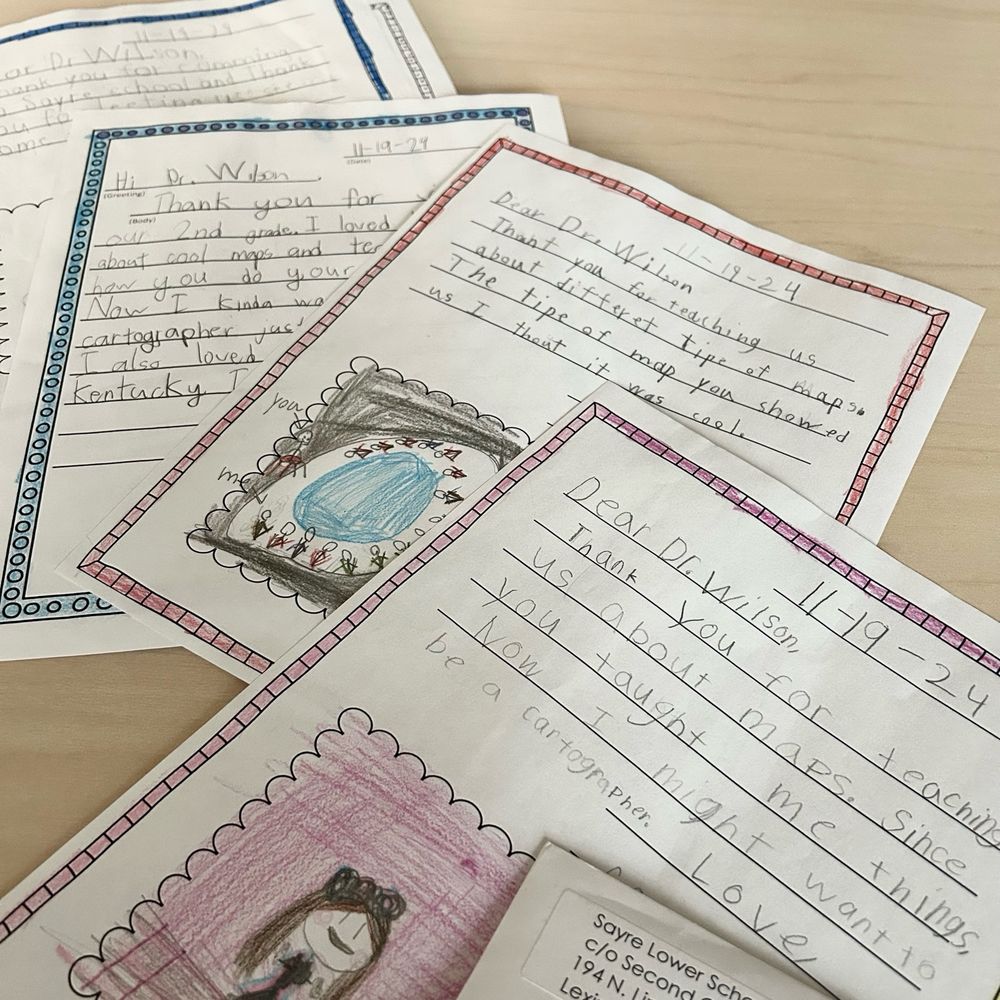 11-19-24
Dr. Wilson,
thank you for
Sayre school and thank
11-19-24
(Date)
Hi Dr. Wilson,
(Greeting)
Thank you for
(Body)
our 2nd grade. I loved
about cool maps and
how you do your
Now I kinda
cartographer
I also loved
Kentucky I
11-19-24
Dear Dr. Wilson
Thant you for teaching us
about differet tipe of maps.
The tipe of map you showed
us I thout it was cool.
you
me
11-19-24
Dear Dr. Wilson,
Thank you for teaching
us about maps. Since
you taught me things,
Now I might want to
be a cartographer.
Love,
Sayre Lower
c/o Second
194 N.